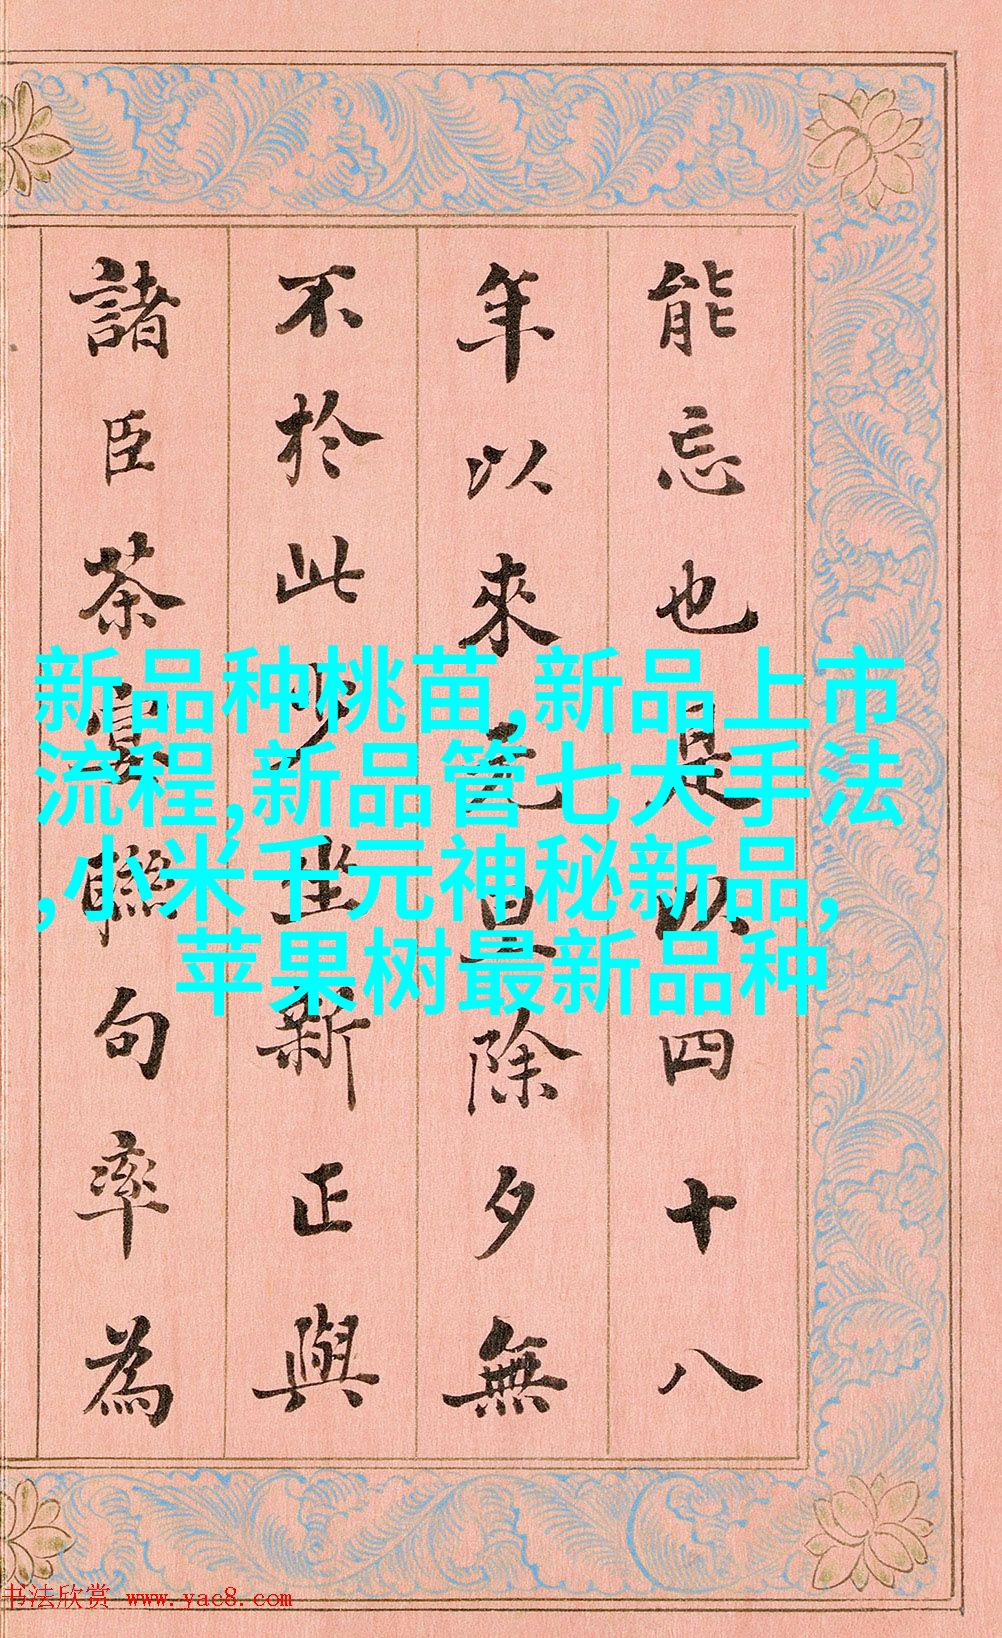 能忘也是以四十八
年以來元旦除夕無
不於此少坐新正與
諸臣茶宴聯句率為
新品种桃苗,新品上市
流程,新品管七大手法
,小米千元神秘新品,
苹果树最新品种
书法欣赏 www.yac8.com